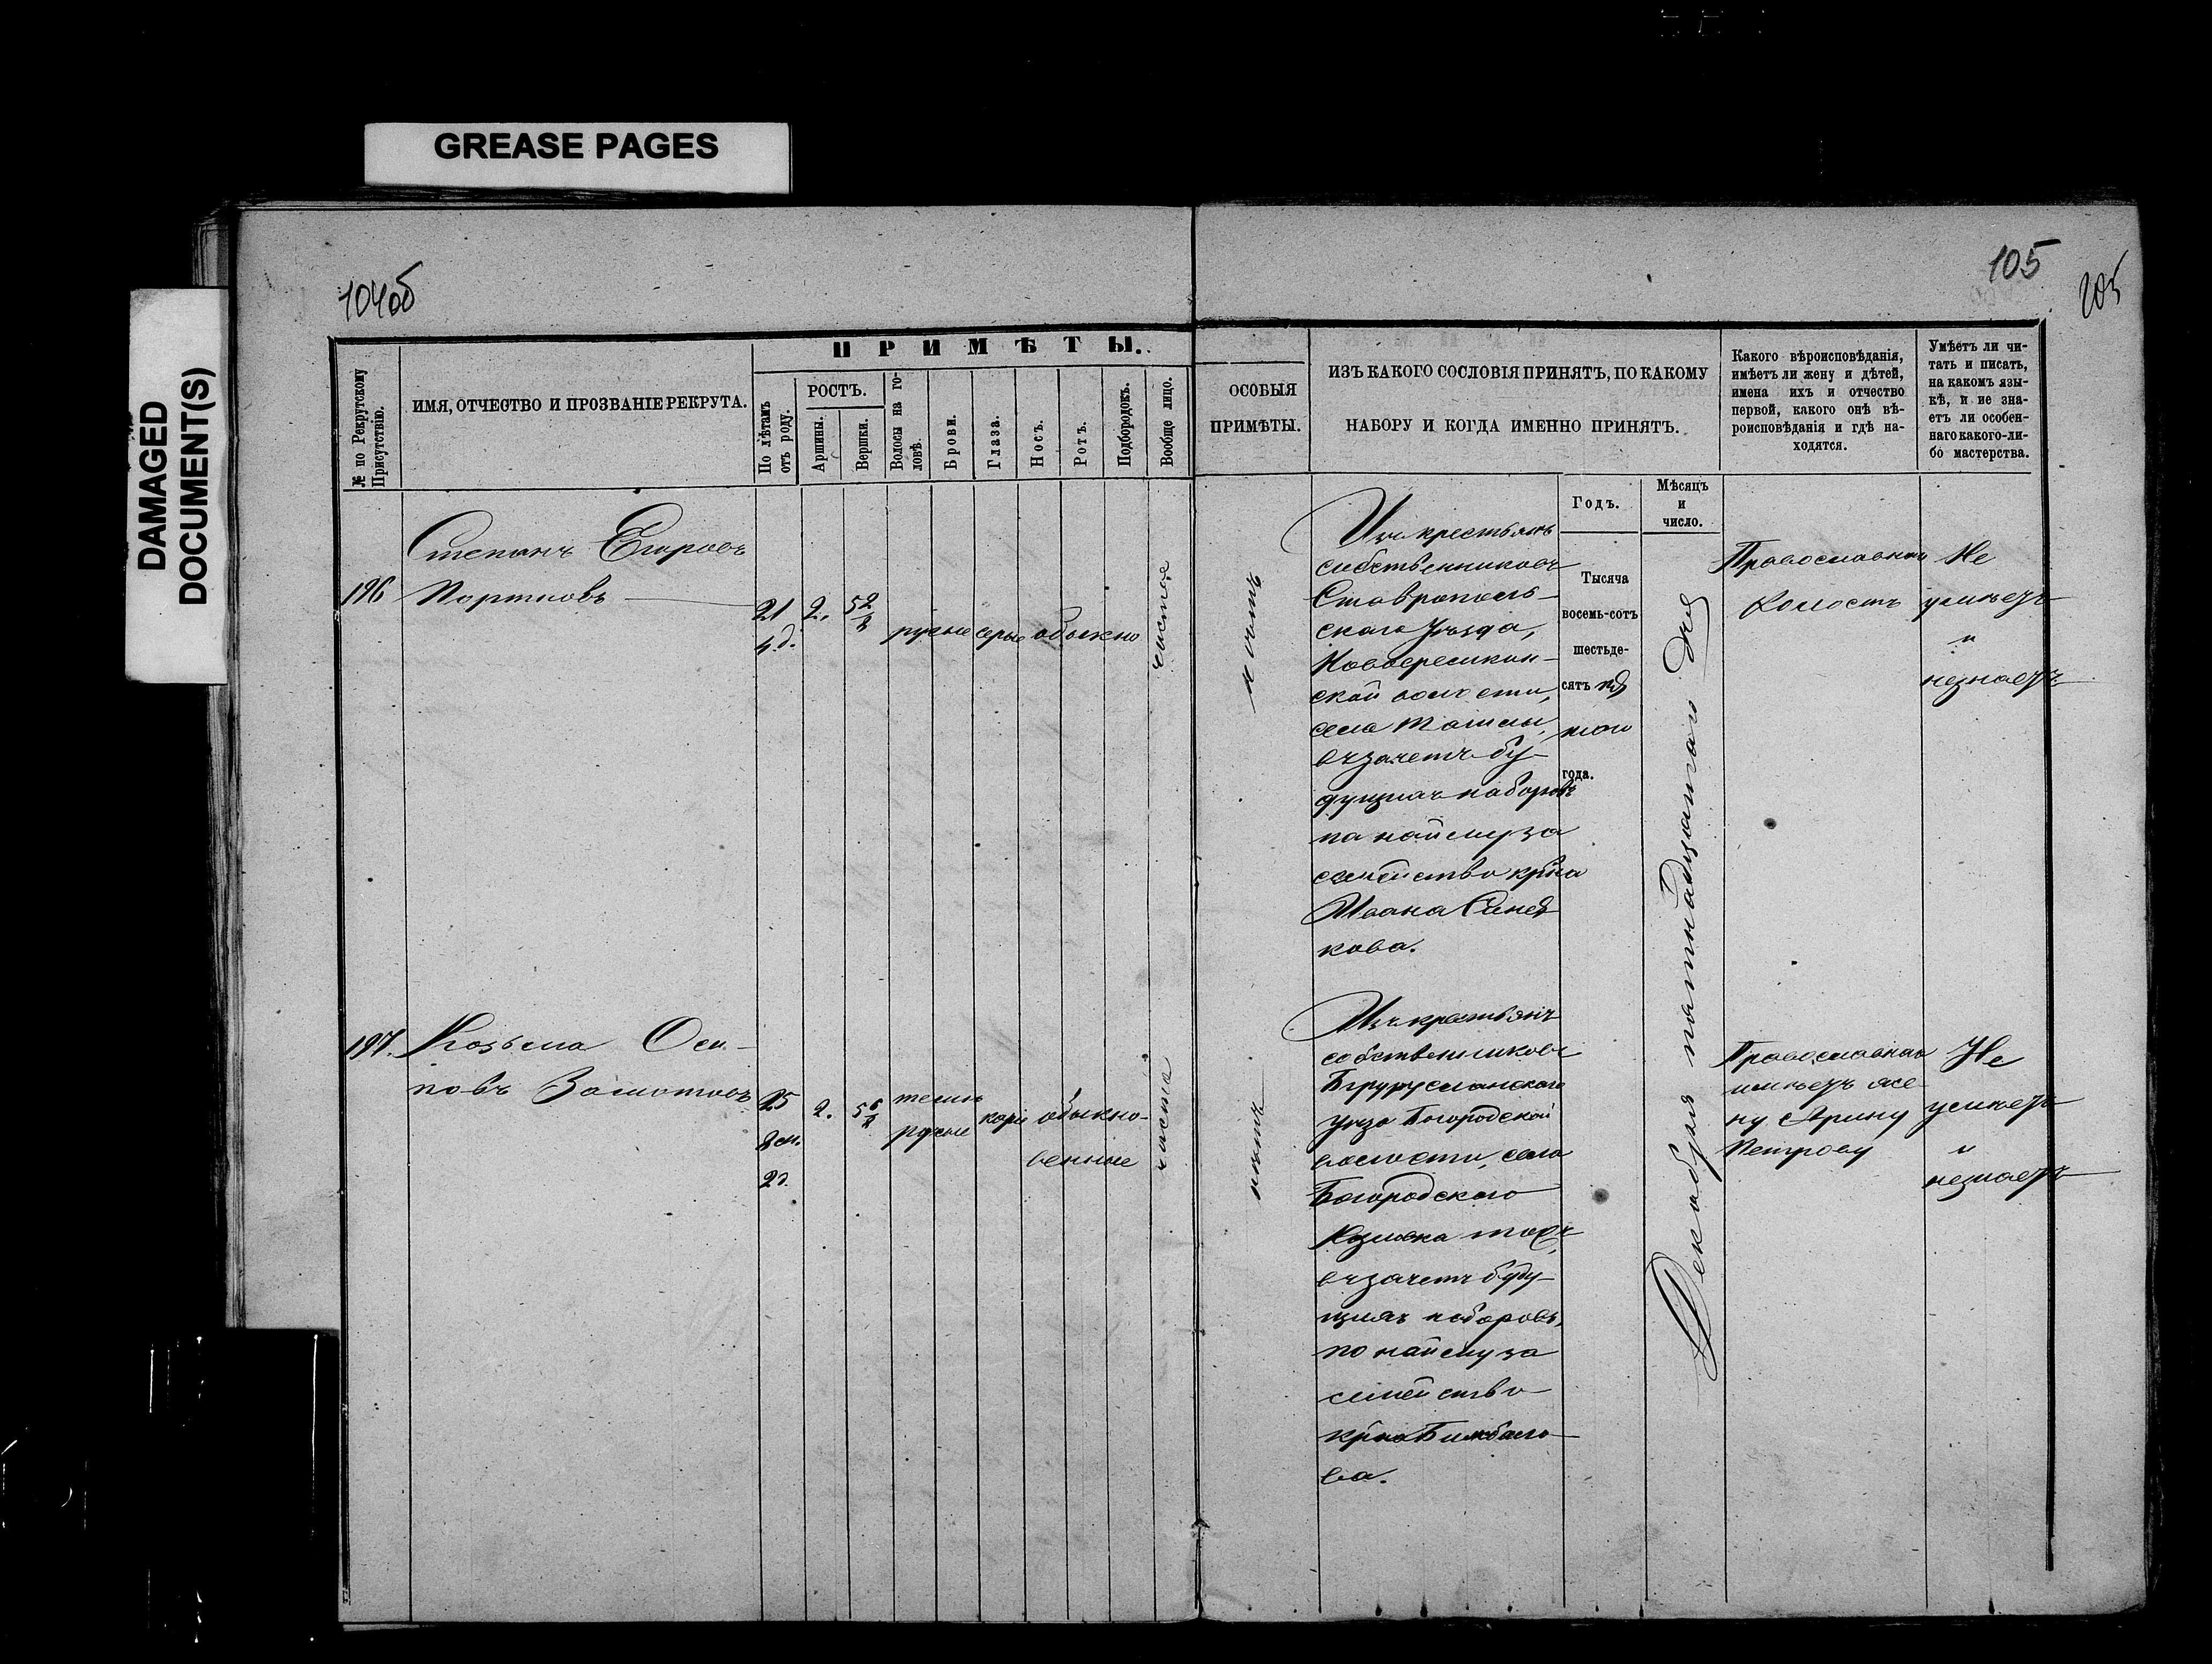 GREASE PAGES
DAMAGED
DOCUMENT(S)
104об
105
105
№ по Рекрутскому
Присутствію.
ИМЯ, ОТЧЕСТВО И ПРОЗВАНІЕ РЕКРУТА.
ПРИМѢТЫ.
По лѣтамъ
отъ роду.
РОСТЪ.
Аршины.
Вершки.
Волосы на го-
ловѣ.
Брови.
Глаза.
Носъ.
Ротъ.
Подбородокъ.
Вообще лицо.
ОСОБЫЯ
ПРИМѢТЫ.
ИЗЪ КАКОГО СОСЛОВІЯ ПРИНЯТЪ, ПО КАКОМУ
НАБОРУ И КОГДА ИМЕННО ПРИНЯТЪ.
Какого вѣроисповѣданія,
имѣетъ ли жену и дѣтей,
имена ихъ и отчество
первой, какого онѣ вѣ-
роисповѣданія и гдѣ на-
ходятся.
Умѣетъ ли чи-
тать и писать,
на какомъ язы-
кѣ, и не зна-
етъ ли особен-
наго какого-ли-
бо мастерства.
Годъ.
Мѣсяцъ
и
число.
196
Степанъ Егоровъ
Портновъ
21
4 д.
2.
5 2/8
русые
серые
обыкно
чистое
нѣтъ
Изъ крестьянъ
собственниковъ
Ставрополь-
скаго Уѣзда,
ской волости,
села Ташлы,
въ зачетъ бу-
дущихъ наборовъ
по найму за
семейство кр-на
Ивана
кова.
Тысяча
восемь-сотъ
шестьде-
сятъ
года.
Декабря пятнадцатаго дня
Православнаго
холостъ
Не
умѣетъ
и
незнаетъ
197.
Козьма Оси-
повъ Замотовъ
25
2 м.
2 д.
2.
5 6/8
темно
русые
каріе
обыкно-
венные
чистое
нѣтъ
Изъ крестьянъ
собственниковъ
Бугурусланскаго
уѣзда Богородской
волости, села
Богородскаго
тожъ,
въ зачетъ буду-
щихъ наборовъ,
по найму за
семейство
кр-на
ва.
Православнаго
имѣетъ же-
ну Арину
Петрову
Не
умѣетъ
и
незнаетъ